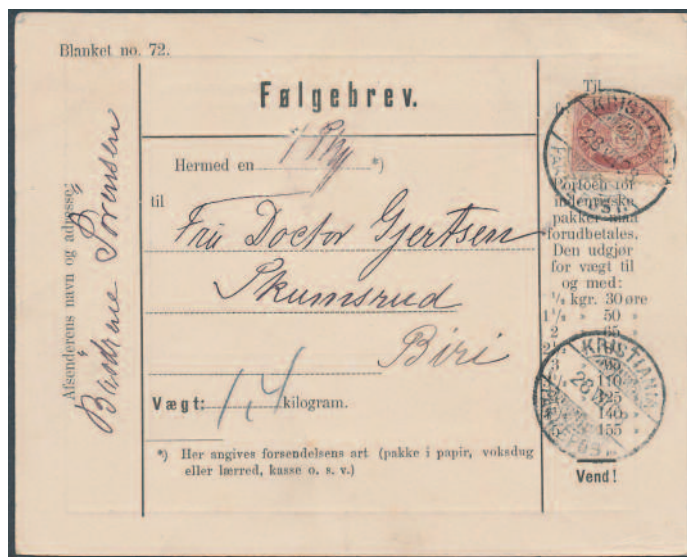 Blanket no. 72.
Følgebrev.
Afsenderens navn og adresse:
Brødrene Sørensen
Hermed en 1 Pk *)
til
Fru Doctor Gjertsen
Skumsrud
Biri
Vægt: 1,4 kilogram.
*) Her angives forsendelsens art (pakke i papir, voksdug
eller lærred, kasse o. s. v.)
Til
KRISTIANIA
Portoen for
indenrigske
pakker maa
forudbetales.
Den udgjør
for vægt til
og med:
kgr. 30 øre
1 1/2 " 50 "
2 " 65 "
110
125
140 "
155 "
KRISTIANIA
Vend!